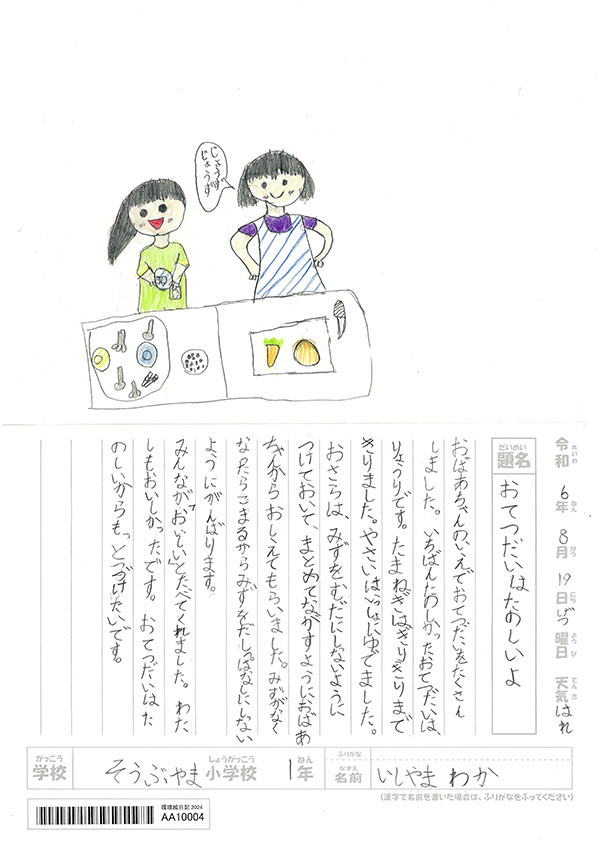 じょうず
じょうず
令和6年8月19日げつ曜日 天気はれ
れいわ ねん がつ にち ようび てんき
だいめい
題名
おてつだいはたのしいよ
おばあちゃんのいえでおてつだいをたくさん
しました。いちばんたのしかったおてつだいは、
りょうりです。たまねぎはぎりぎりまで
きりました。やさいはいっしょにゆでました。
おさらは、みずをむだにしないように
つけておいて、まとめてながすようにおばあ
ちゃんからおしえてもらいました。みずがなく
なったらこまるからみずをだしっぱなしにしない
ようにがんばります。
みんなが"おいしい"とたべてくれました。わた
しもおいしかったです。おてつだいはた
のしいからもっとつづけたいです。
がっこう しょうがっこう ねん ふりがな
学校 そうぶやま小学校 1年 なまえ 名前 いしやま わか
(漢字で名前を書いた場合は、ふりがなをふってください)
環境絵日記2024
AA10004